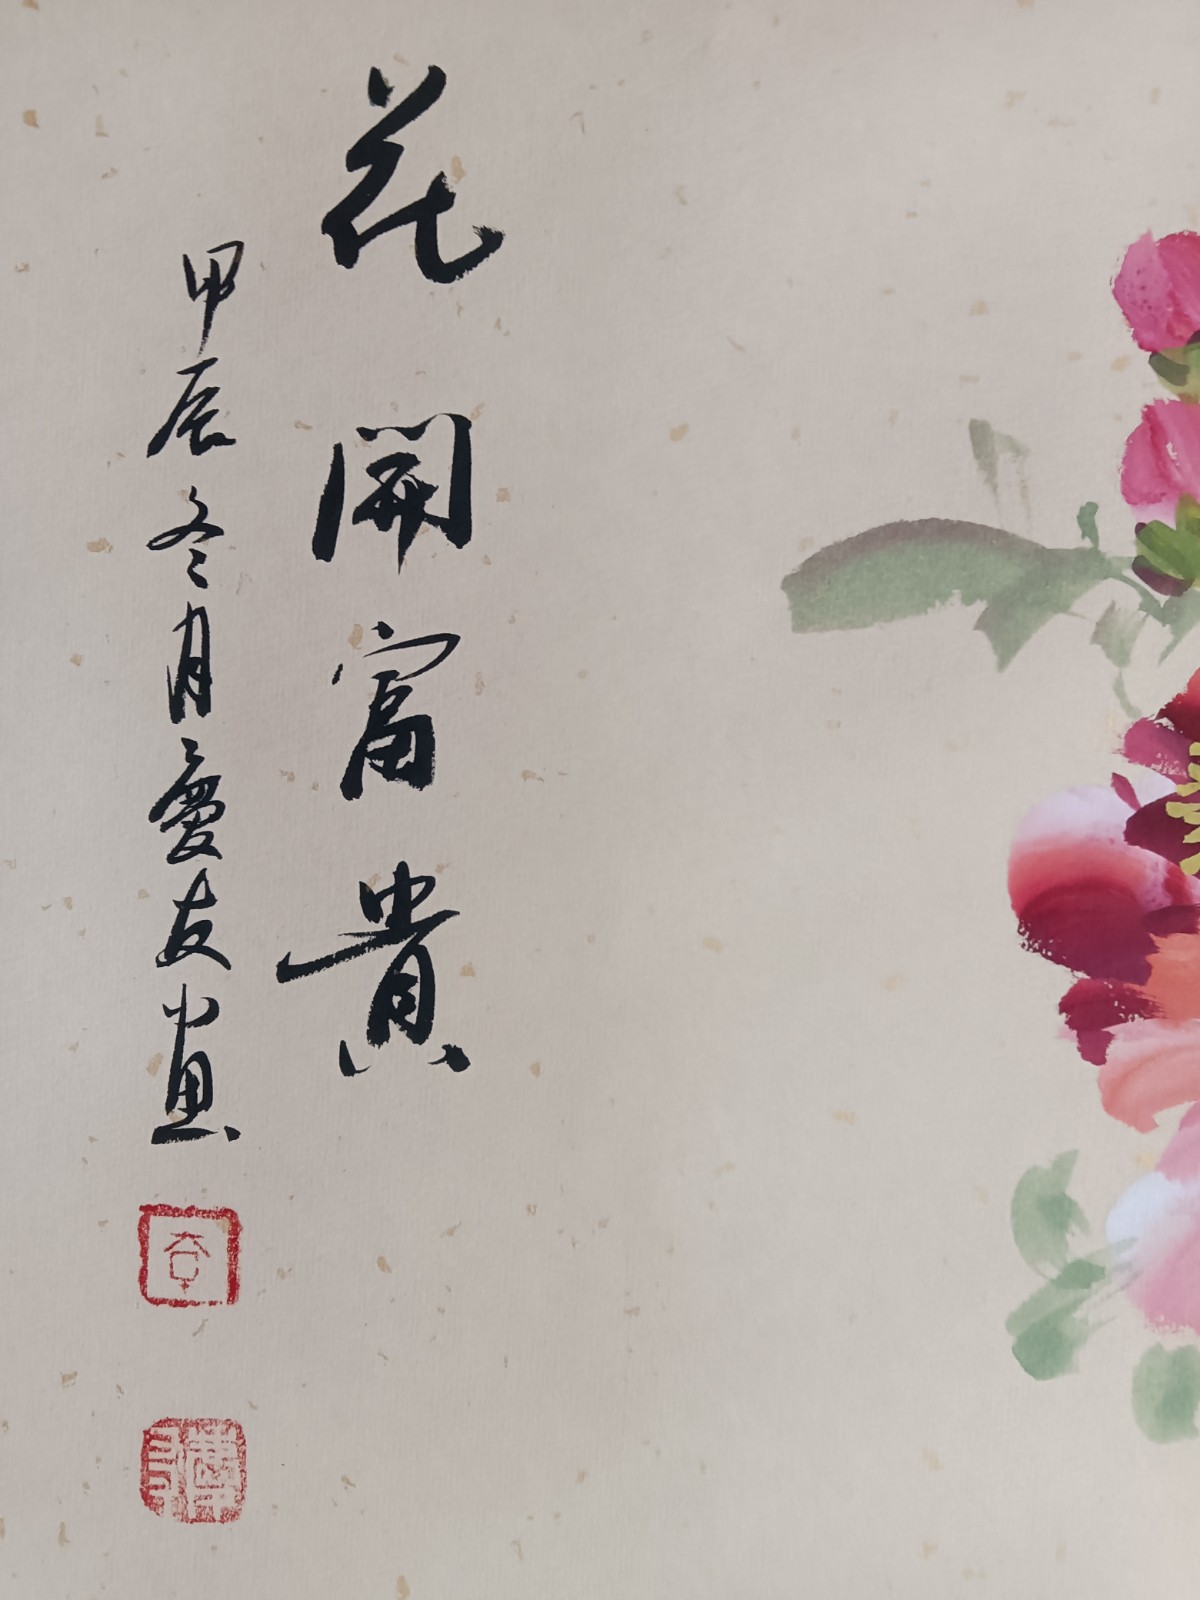 花開富貴
甲辰冬月愛友畫